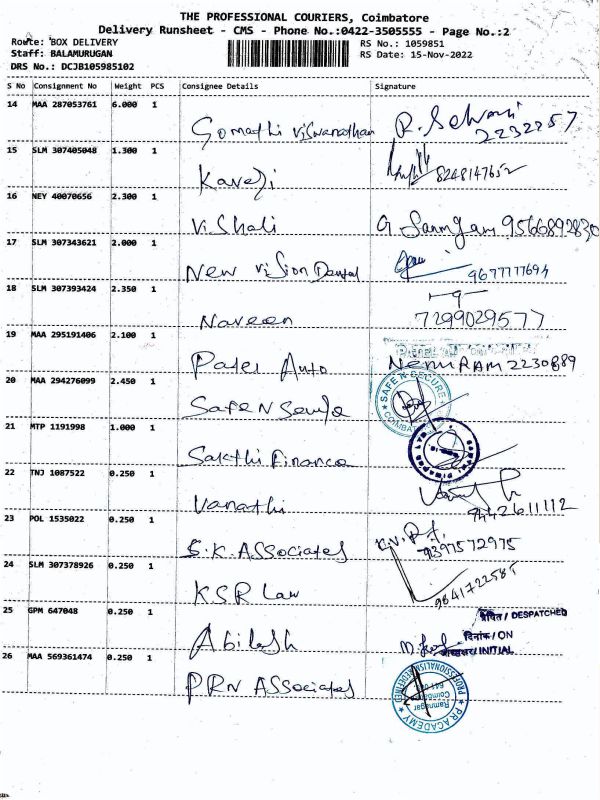 THE PROFESSIONAL COURIERS, Coimbatore
Delivery Runsheet - CMS - Phone No.:0422-3505555 - Page No.:2
Route: BOX DELIVERY
RS No.: 1059851
Staff: BALAMURUGAN
RS Date: 15-Nov-2022
DRS No.: DCJB105985102
S No Consignment No Weight PCS Consignee Details Signature
14 MAA 287053761 6.000 1
Gomathi Viswanathan R. Selvani 2232257
15 SLM 307405048 1.300 1
Kaveri 8248147652
16 NEY 40070656 2.300 1
Vishali G. Sanmgam 9566892830
17 SLM 307343621 2.000 1
New Vision Dental 9677777694
18 SLM 307393424 2.350 1
Naveen 7299029577
19 MAA 295191406 2.100 1
Patel Auto NemuRAM 2230889
20 MAA 294276099 2.450 1
Safe N Secure SAFE N SECURE
21 MTP 1191998 1.000 1
Sakthi Finance
22 TNJ 1087522 0.250 1
Vanathi 9442611112
23 POL 1535022 0.250 1
S.K. Associates 9397572975
24 SLM 307378926 0.250 1
KSR Law 9841722585
25 GPM 647048 0.250 1
प्रेषित / DESPATCHED
Abilash
दिनांक / ON
आद्यक्षर / INITIAL
26 MAA 569361474 0.250 1
PRN Associates
PROFESSIONALISM REDEFINED
Ramnagar
Coimbatore
PR ACADEMY